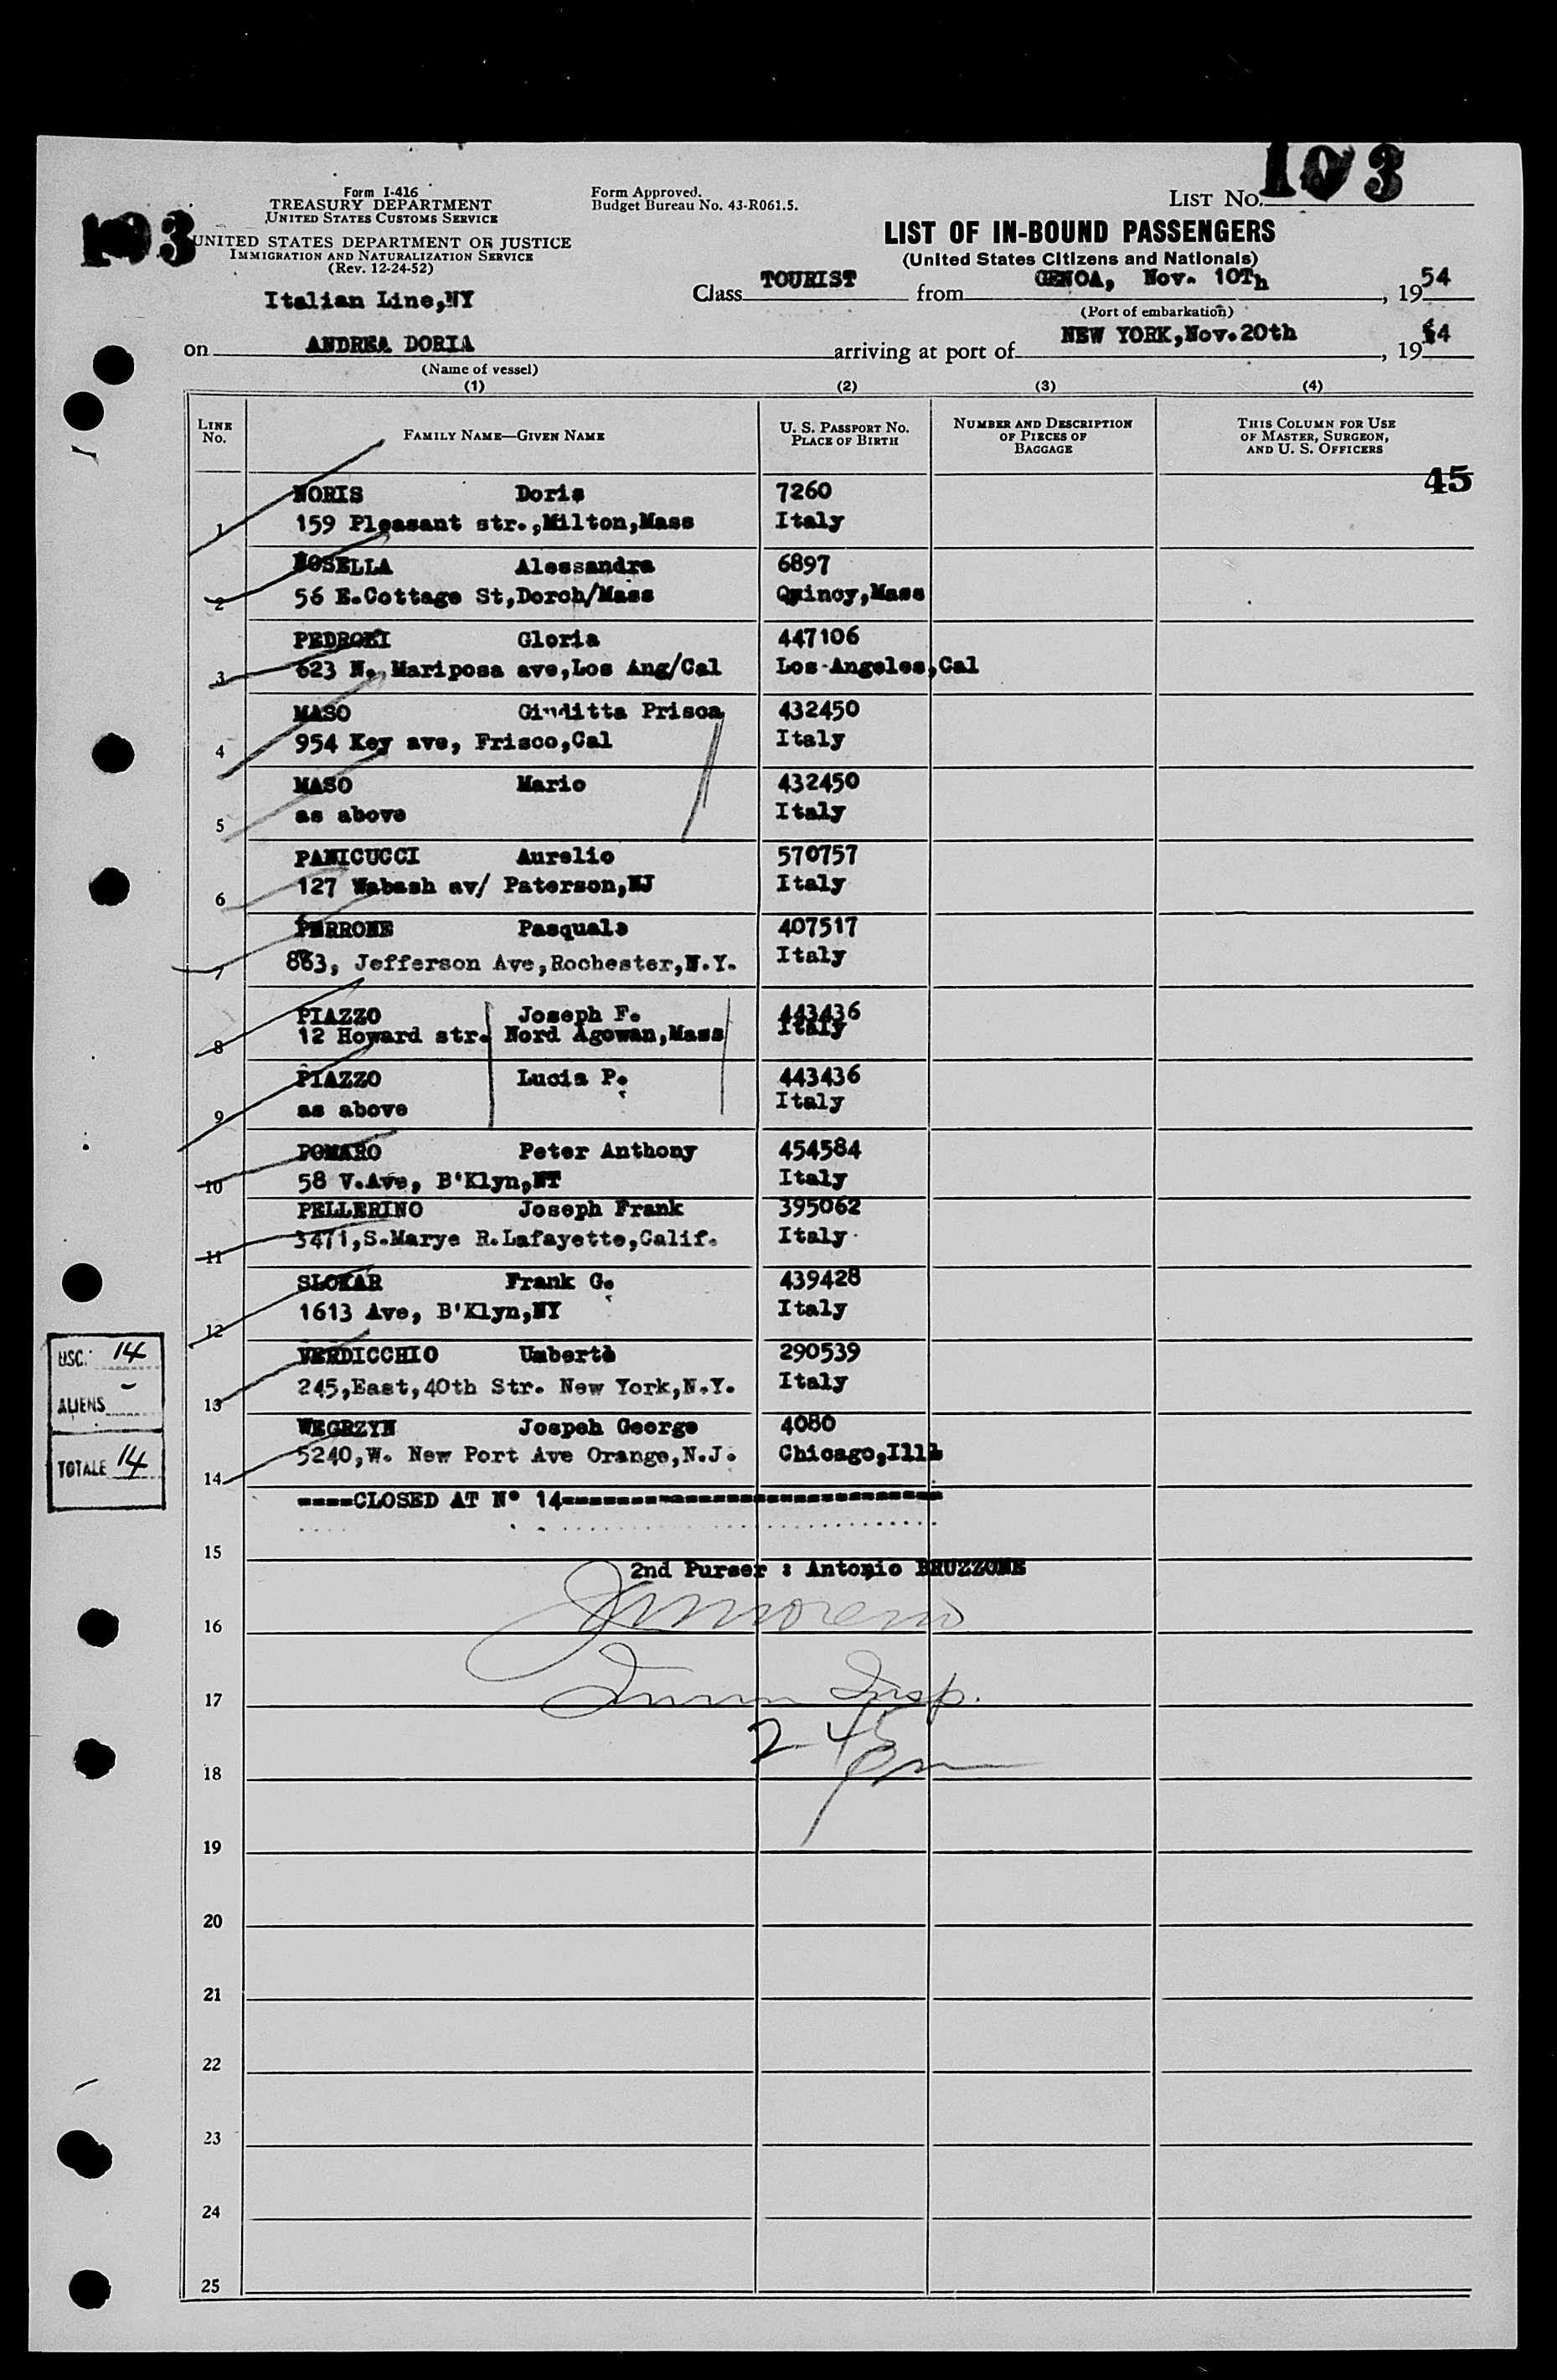 103
Form I-416
TREASURY DEPARTMENT
UNITED STATES CUSTOMS SERVICE
UNITED STATES DEPARTMENT OF JUSTICE
IMMIGRATION AND NATURALIZATION SERVICE
(Rev. 12-24-52)
Form Approved.
Budget Bureau No. 43-R061.5.
LIST NO. 103
LIST OF IN-BOUND PASSENGERS
(United States Citizens and Nationals)
Italian Line,NY
Class TOURIST from GENOA, Nov. 10Th, 1954
(Port of embarkation)
on ANDREA DORIA arriving at port of NEW YORK,Nov.20th, 1954
(Name of vessel)
(1) (2) (3) (4)
LINE No. FAMILY NAME—GIVEN NAME U. S. PASSPORT NO. PLACE OF BIRTH NUMBER AND DESCRIPTION OF PIECES OF BAGGAGE THIS COLUMN FOR USE OF MASTER, SURGEON, AND U. S. OFFICERS
45
NORIS Doris 7260
1 159 Pleasant str.,Milton,Mass Italy
NOSELLA Alessandra 6897
2 56 E.Cottage St,Dorch/Mass Quincy,Mass
Gloria 447106
3 623 N. Mariposa ave,Los Ang/Cal Los Angeles,Cal
MASO Giuditta Prisca 432450
4 954 Key ave, Frisco,Cal Italy
MASO Mario 432450
5 as above Italy
PANICUCCI Aurelio 570757
6 127 Wabash av/ Paterson,NJ Italy
PERRONE Pasquale 407517
7 863, Jefferson Ave,Rochester,N.Y. Italy
PIAZZO Joseph F. 443436
8 12 Howard str. Nord Agowan,Mass Italy
PIAZZO Lucia P. 443436
9 as above Italy
POMARO Peter Anthony 454584
10 58 V.Ave, B'Klyn,NY Italy
PELLERINO Joseph Frank 395062
11 3471,S.Marye R.Lafayette,Calif. Italy
SLOKAR Frank G. 439428
12 1613 Ave, B'Klyn,NY Italy
VERDICCHIO Umberto 290539
13 245,East,40th Str. New York,N.Y. Italy
WEGRZYN Jospeh George 4080
14 5240,W. New Port Ave Orange,N.J. Chicago,Ill
----CLOSED AT N° 14------------------------------
USC. 14
ALIENS -
TOTALE 14
15
2nd Purser : Antonio BRUZZONE
16
17
Imm Insp.
2-45 pm
18
19
20
21
22
23
24
25